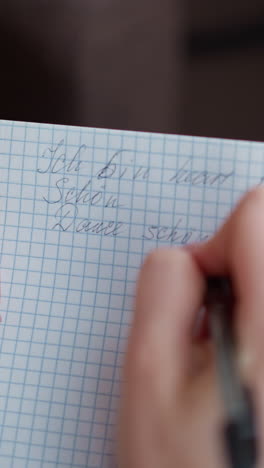 Ich bin har
Schön
Dance schon